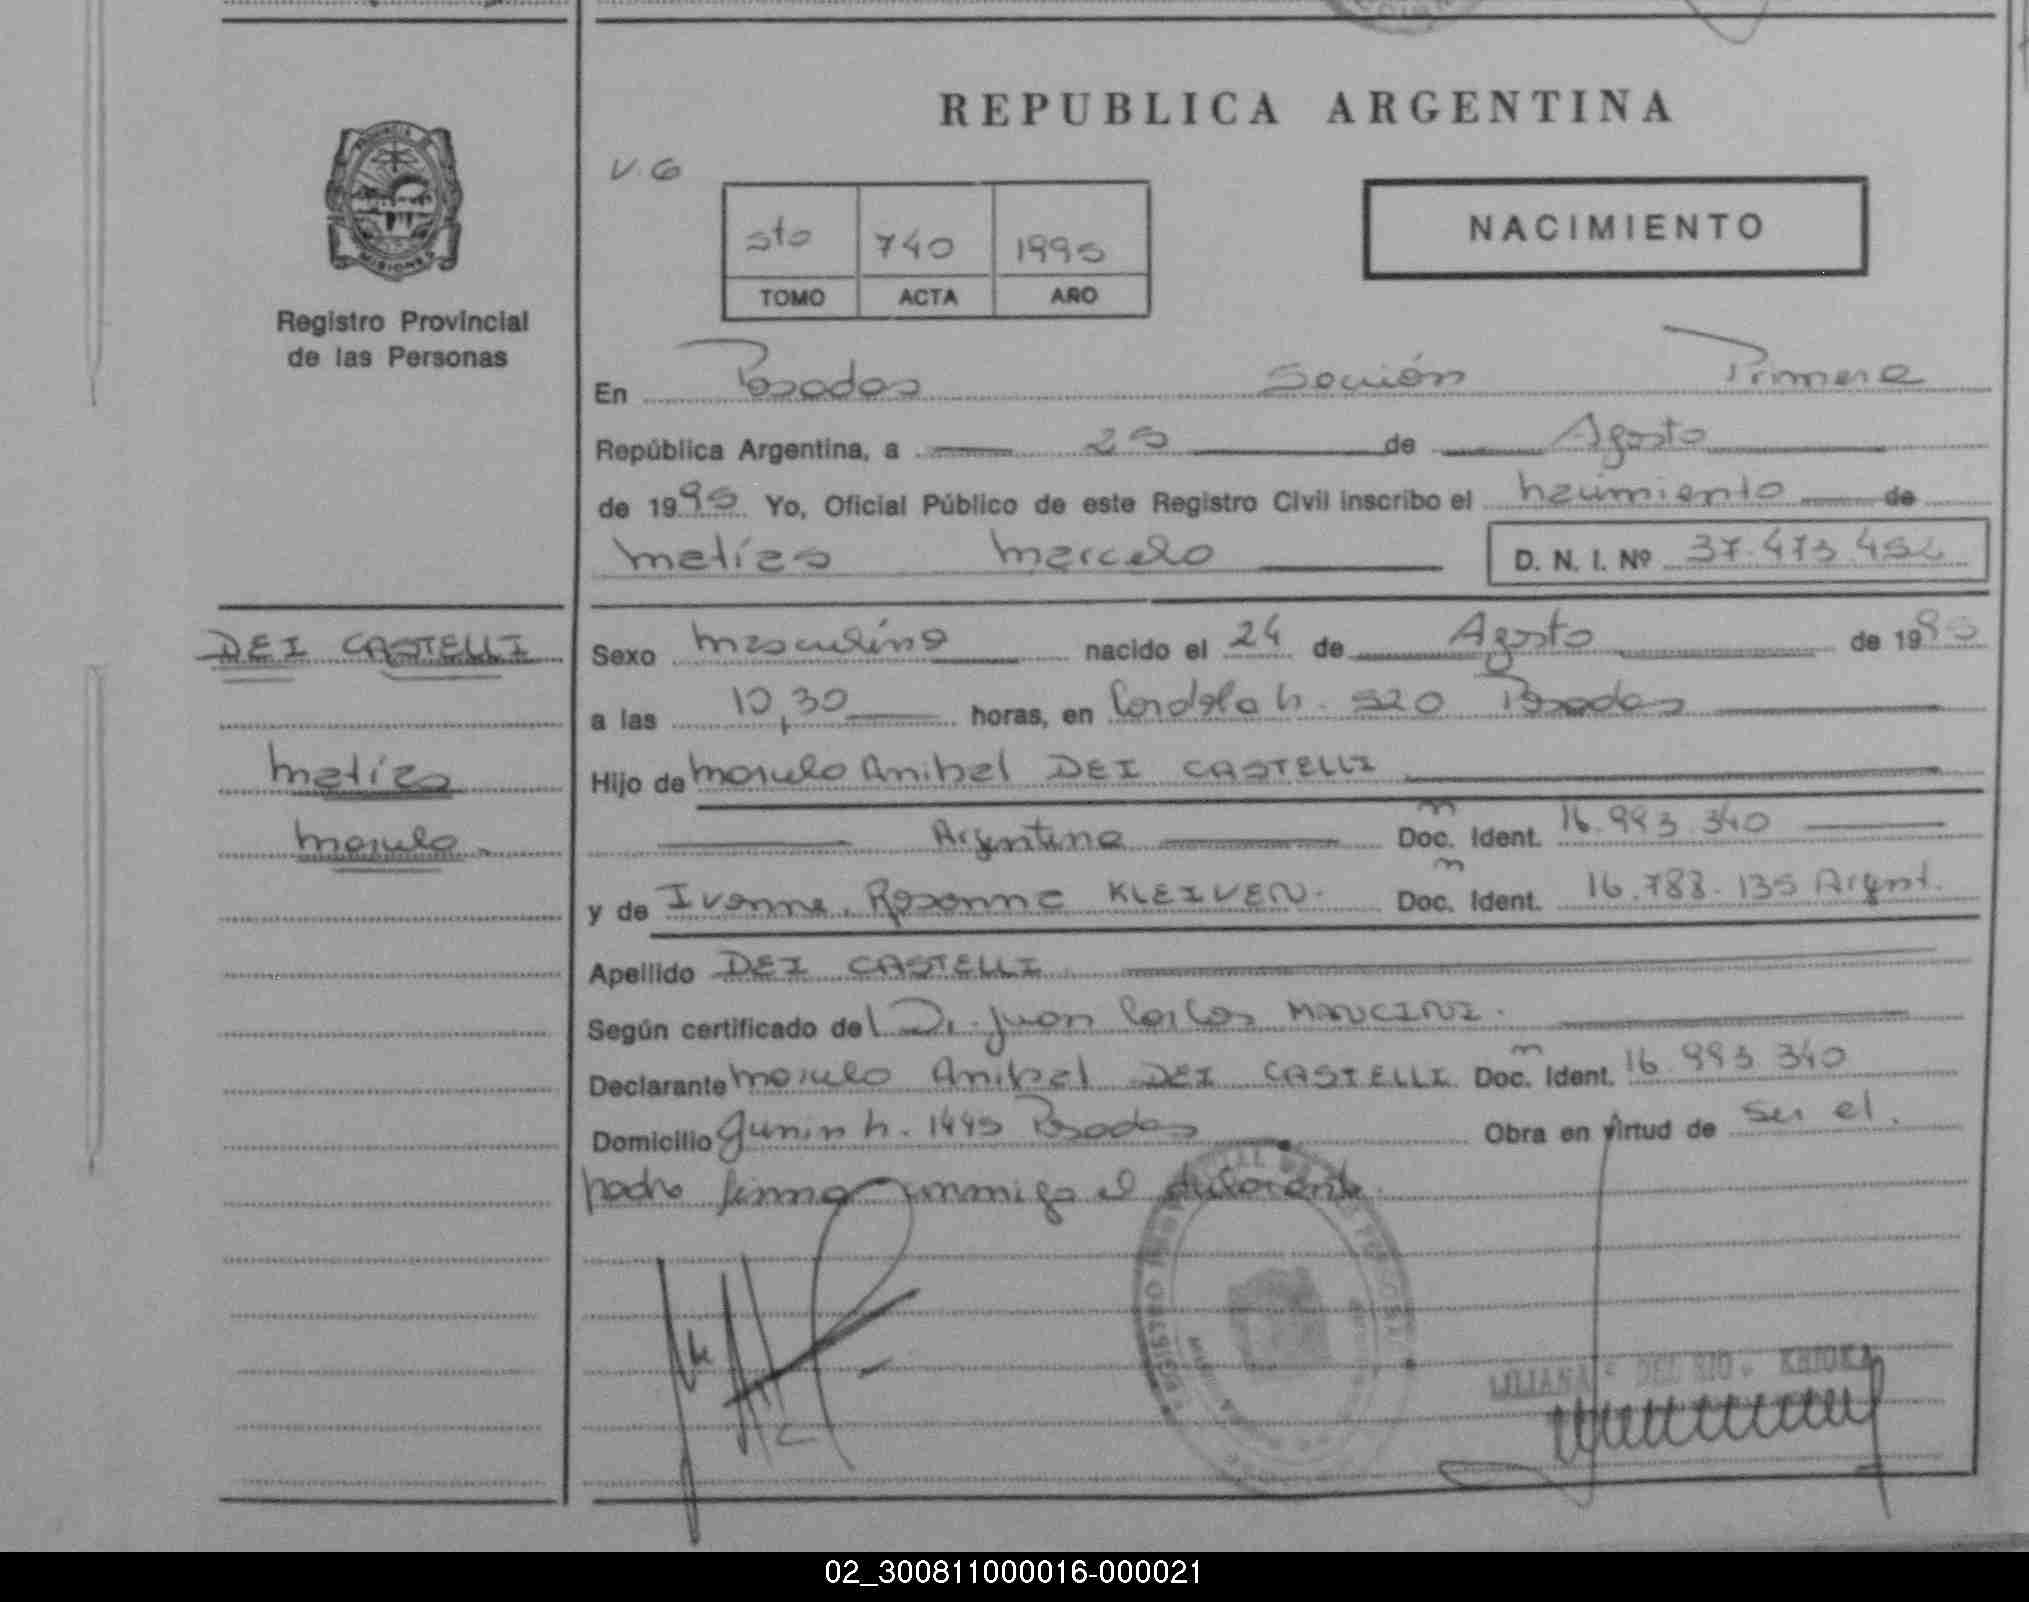 REPUBLICA ARGENTINA
V.G
5to 740 1995
TOMO ACTA AÑO
NACIMIENTO
MISIONES
Registro Provincial
de las Personas
En Posadas Sección Primera
República Argentina, a 25 de Agosto
de 1995 Yo, Oficial Público de este Registro Civil inscribo el nacimiento de
Matías Marcelo
D. N. I. Nº 37.473.452
DEI CASTELLI
Matías
Marcelo
Sexo masculino nacido el 24 de Agosto de 1995
a las 10,30 horas, en Córdoba n. 520 Posadas
Hijo de Marcelo Anibal DEI CASTELLI
Argentino Doc. Ident. 16.993.340
y de Ivonne Rosanna KLEIVEN. Doc. Ident. 16.788.135 Argent.
Apellido DEI CASTELLI
Según certificado del Dr. Juan Carlos MANCINI.
Declarante Marcelo Anibal DEI CASTELLI Doc. Ident. 16.993.340
Domicilio Junin n. 1445 Posadas Obra en virtud de ser el
padre firma conmigo el declarante.
LILIANA DEL RIO
02_300811000016-000021